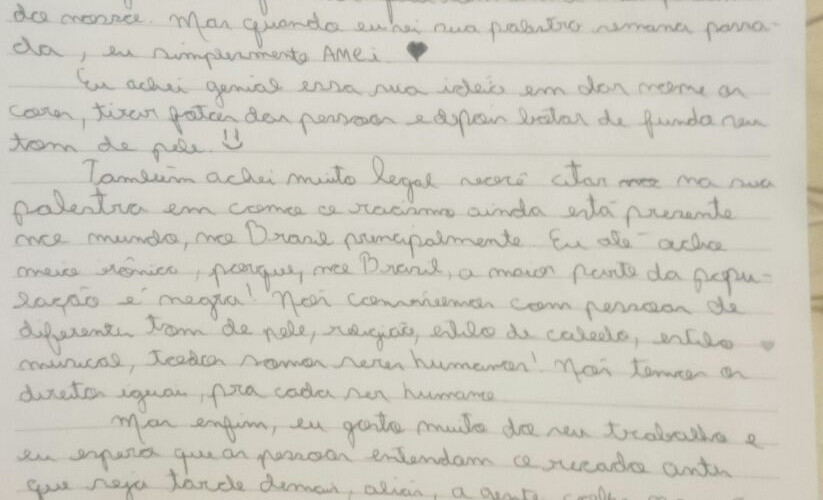 Mas quando eu hei sua palestra semana passa-
da, eu simplesmente AMEi ♥
Eu achei genial essa sua ideia em dar nome as
cores, tirar fotos das pessoas e depois botar de fundo seu
tom de pele. :)
Também achei muito legal você citar na sua
palestra em como o racismo ainda está presente
no mundo, no Brasil principalmente. Eu até acho
meio irônico, porque, no Brasil, a maior parte da popu-
lação é negra! Nós convivemos com pessoas de
diferentes tom de pele, religião, estilo de cabelo, estilo
musical, todos somos seres humanos! Nós temos os
direitos iguais, pra cada ser humano
Mas enfim, eu gosto muito do seu trabalho e
eu espero que as pessoas entendam o recado antes
que seja tarde demais, aliás, a gente